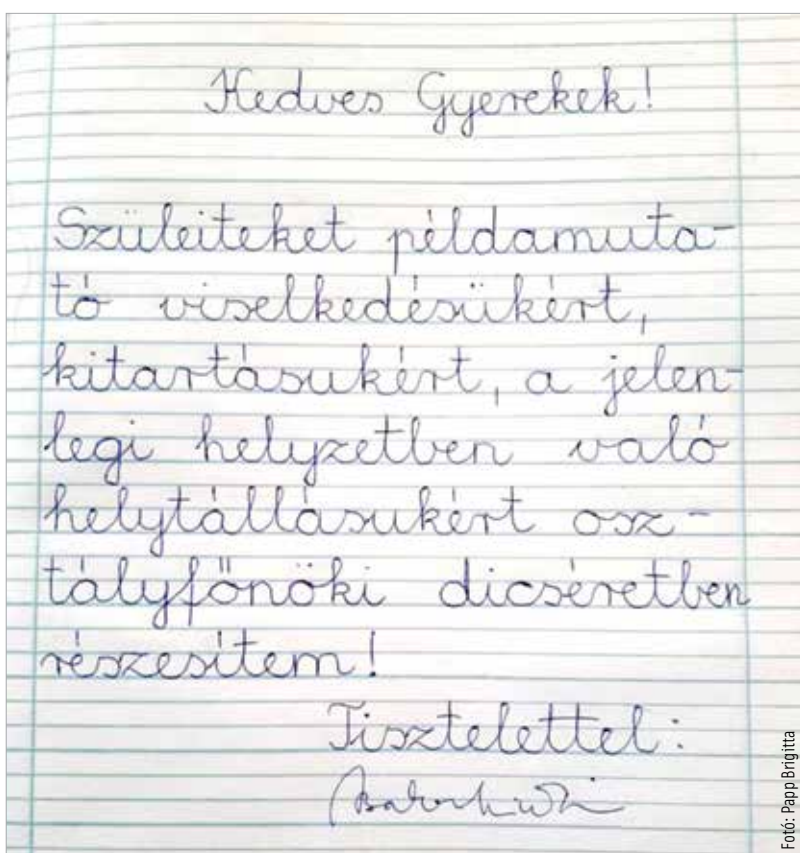 Kedves Gyerekek!
Szüleiteket példamuta-
tó viselkedésükért,
kitartásukért, a jelen-
legi helyzetben való
helytállásukért osz-
tályfőnöki dicséretben
részesítem!
Tisztelettel:
Fotó: Papp Brigitta